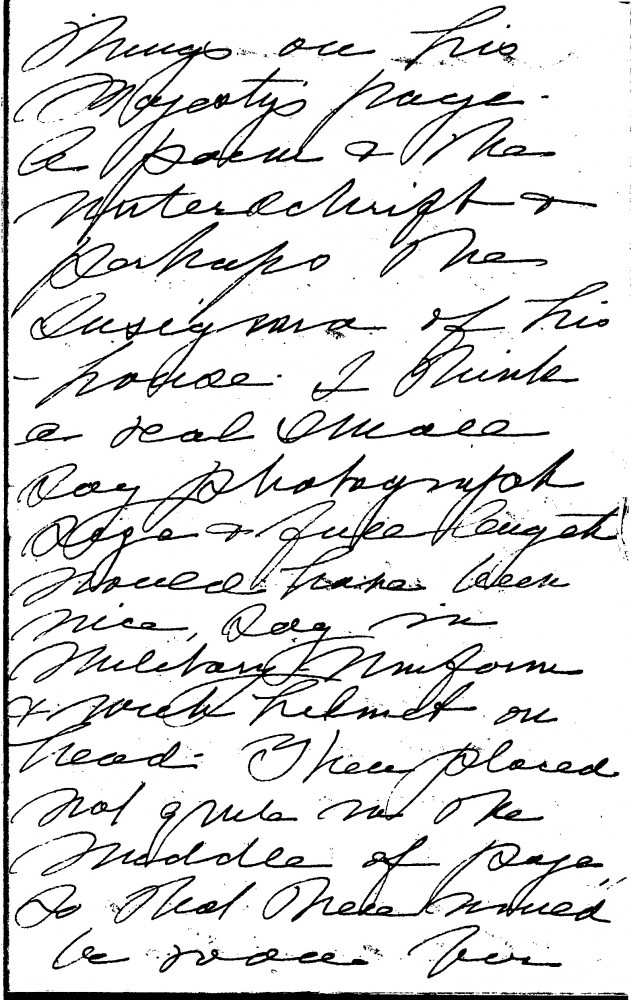 things on his
Majesty's page.
A poem & the
Unterschrift &
perhaps the
Insignia of his
- house. I think
a real small
say photograph
size & full length
would have been
nice, say in
Military Uniform
& with helmet on
head. Then placed
not quite in the
middle of page,
so that there would
be room